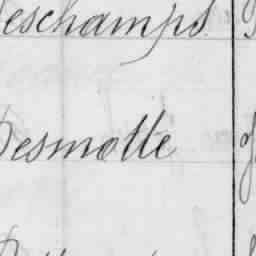 Deschamps
Desmotte